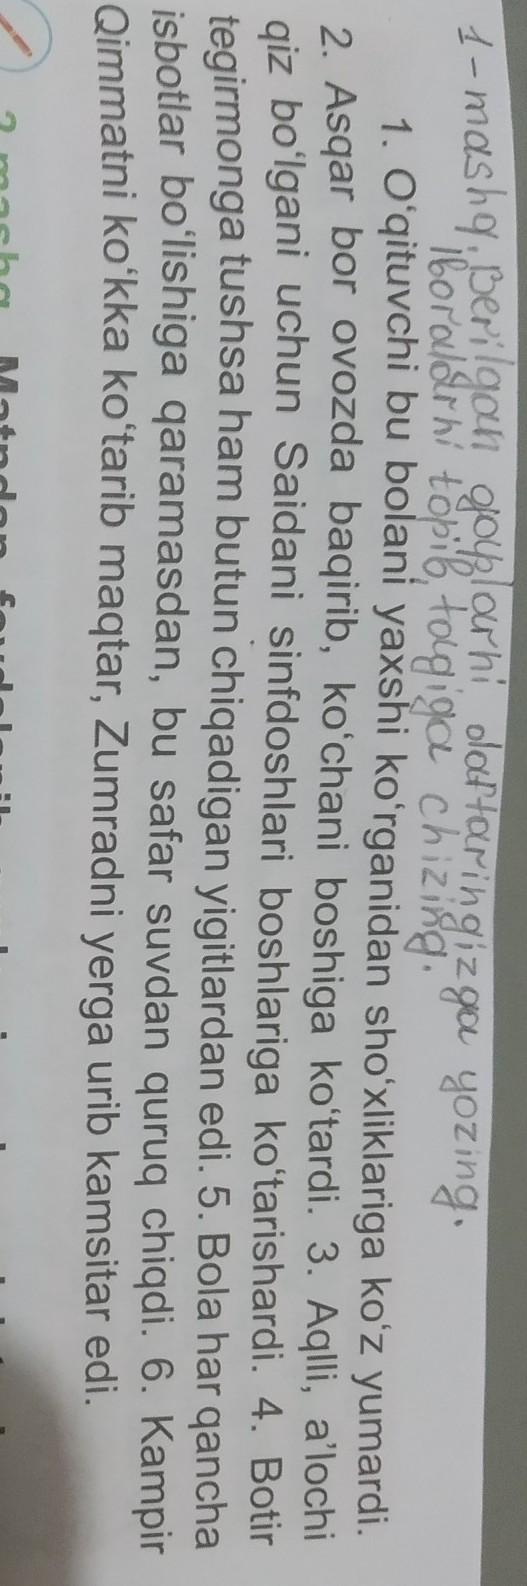 1-mashq. Berilgan gaplarni daftaringizga yozing.
Iboralarni topib, tagiga chizing.
1. O‘qituvchi bu bolani yaxshi ko‘rganidan sho‘xliklariga ko‘z yumardi.
2. Asqar bor ovozda baqirib, ko‘chani boshiga ko‘tardi. 3. Aqlli, a’lochi
qiz bo‘lgani uchun Saidani sinfdoshlari boshlariga ko‘tarishardi. 4. Botir
tegirmonga tushsa ham butun chiqadigan yigitlardan edi. 5. Bola har qancha
isbotlar bo‘lishiga qaramasdan, bu safar suvdan quruq chiqdi. 6. Kampir
Qimmatni ko‘kka ko‘tarib maqtar, Zumradni yerga urib kamsitar edi.
2-mashq. Matndan